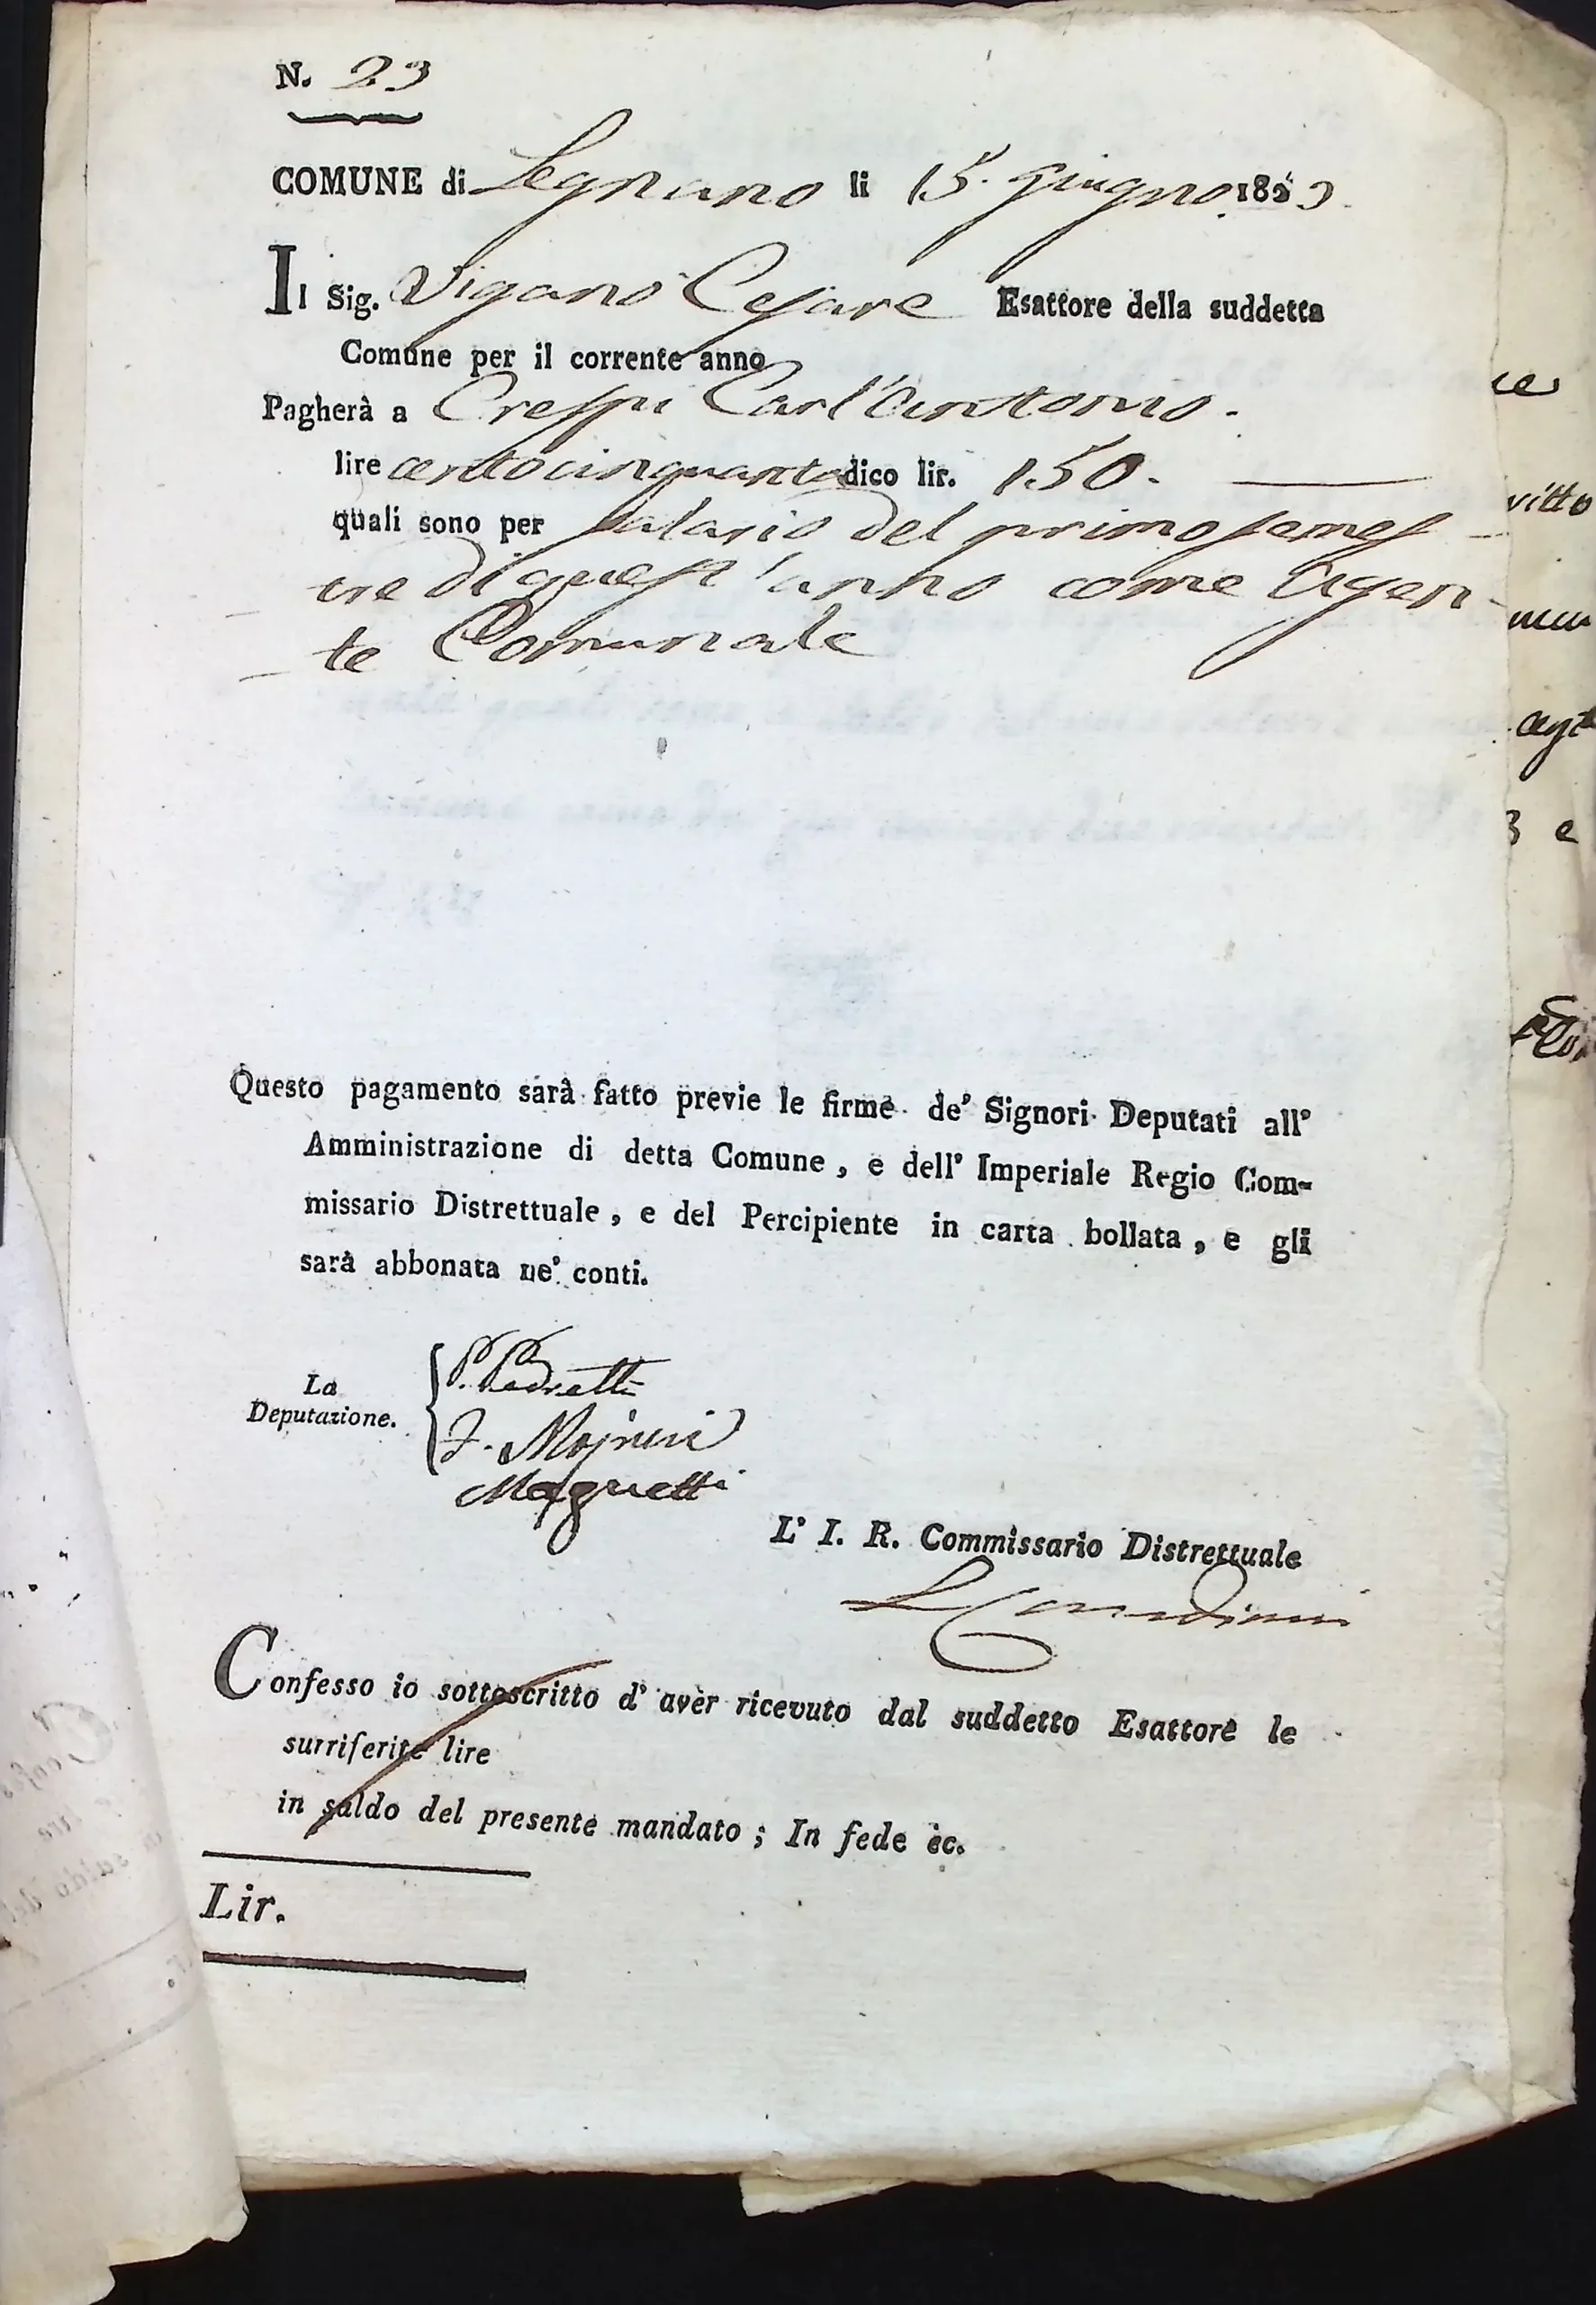 N. 23
COMUNE di Legnano li 15. Giugno 1833.
Il Sig. Viganò Cesare Esattore della suddetta
Comune per il corrente anno
Pagherà a Crespi Carl'Antonio.
lire centocinquanta dico lir. 150.
quali sono per salario del primo semes
tre di quest'anno come Agen
te Comunale
Questo pagamento sarà fatto previe le firme de' Signori Deputati all'
Amministrazione di detta Comune, e dell' Imperiale Regio Com-
missario Distrettuale, e del Percipiente in carta bollata, e gli
sarà abbonata ne' conti.
La
Deputazione.
P. Pedretti
Magnetti
L' I. R. Commissario Distrettuale
Confesso io sottoscritto d' aver ricevuto dal suddetto Esattore le
surriferite lire
in saldo del presente mandato; In fede ec.
Lir.